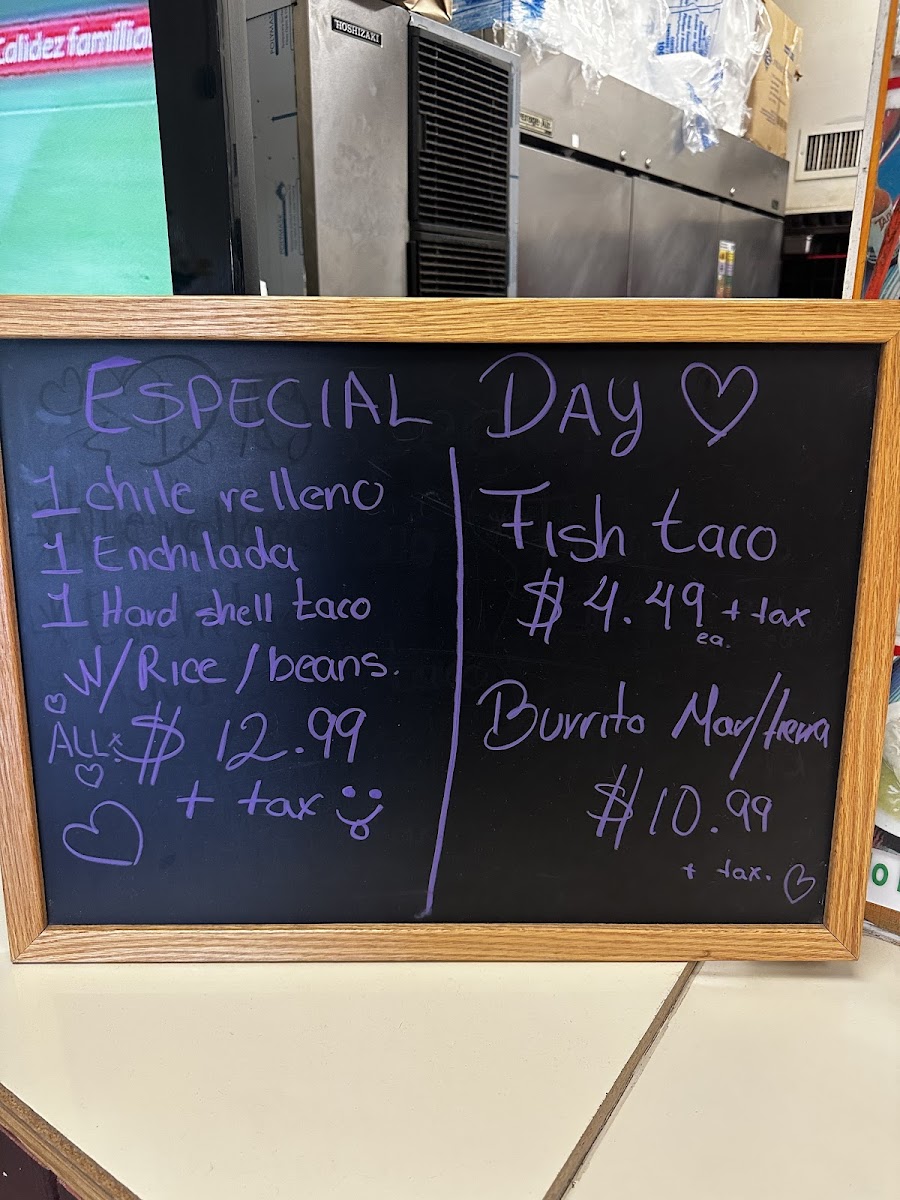 Calidez familiar
HOSHIZAKI
ESPECIAL DAY
1 chile relleno
1 Enchilada
1 Hard shell taco
W/Rice/beans.
ALL: $12.99
+ tax
Fish taco
$4.49 + tax
ea.
Burrito Mar/tierra
$10.99
+ tax.